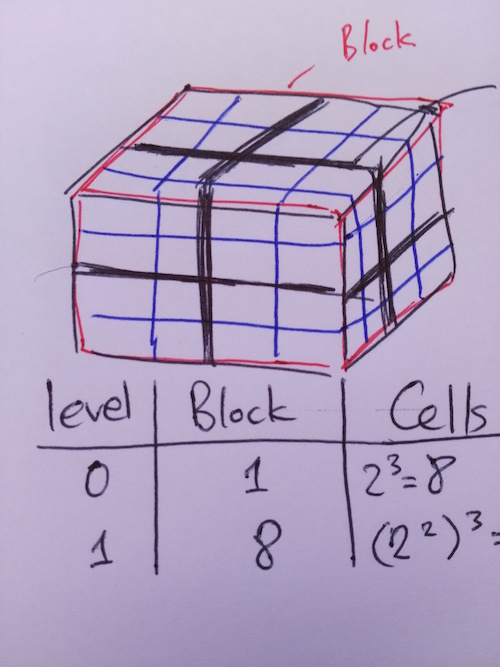 Block
level Block Cells
0 1 2³=8
1 8 (2²)³=